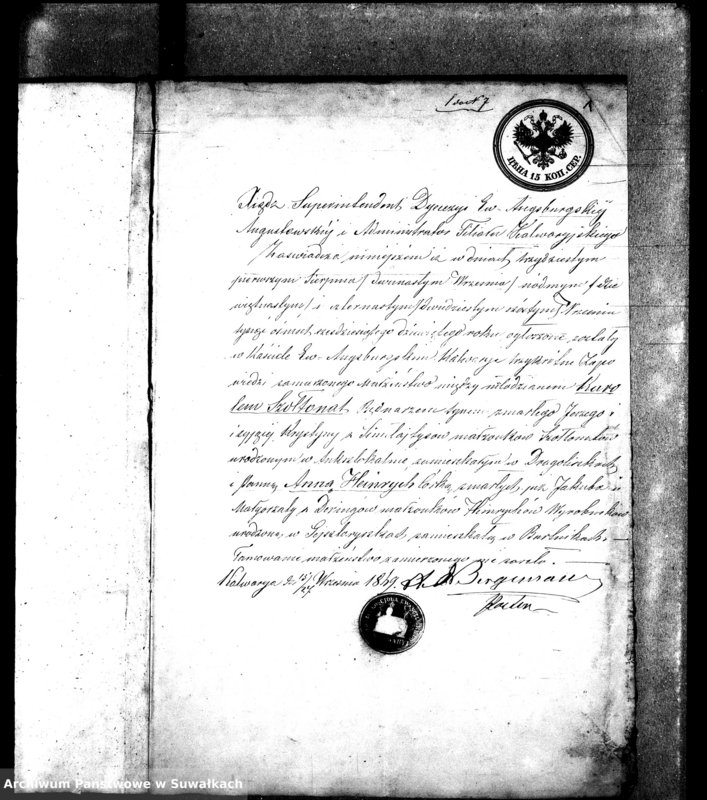 ЦѢНА 15 КОП. СЕР.
Xiądz Superintendent Dyecezyi Ew. Augsburgskiej
Augustowskiej i Administrator Filiału Kalwaryjskiego
Zaświadcza niniejszem iż w dniach trzydziestym
pierwszym Sierpnia / dwunastym Września / siódmym / dzie
więtnastym / i czternastym / dwudziestym szóstym / Września
tysiąc ośmset sześdziesiątego dziewiątego roku ogłoszone zostały
w Kościele Ew. Augsburgskim Kalwaryi trzykrotne Zapo
wiedzi zamierzonego Małżeństwa między młodzianem Karo
lem Szołtonat Bednarzem synem zmarłego Jerzego i
żyjącej Krystyny z małżonków
urodzonym w zamieszkałym w Dragoliszkach
i Panną Anną Heinrych córką zmarłych już Jakuba i
Małgorzaty z Deringów małżonków Heinrychów Wyrobników
urodzoną w zamieszkałą w Bartnikach.
Tamowanie małżeństwa zamierzonego nie zaszło.
Kalwarya d. 15/27 Września 1869. Bergmann
Pastor
Archiwum Państwowe w Suwałkach